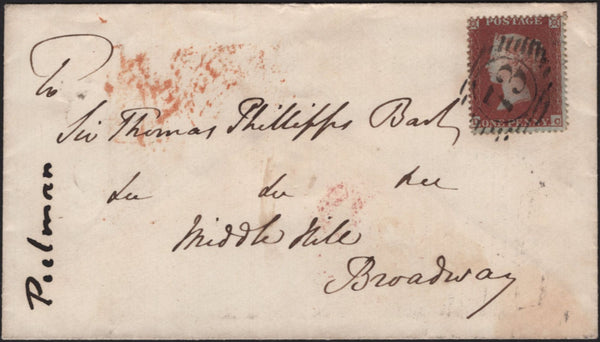 To
Sir Thomas Phillipps Bart
&c &c &c
Middle Hill
Broadway
Poelman
POSTAGE
ONE PENNY
C